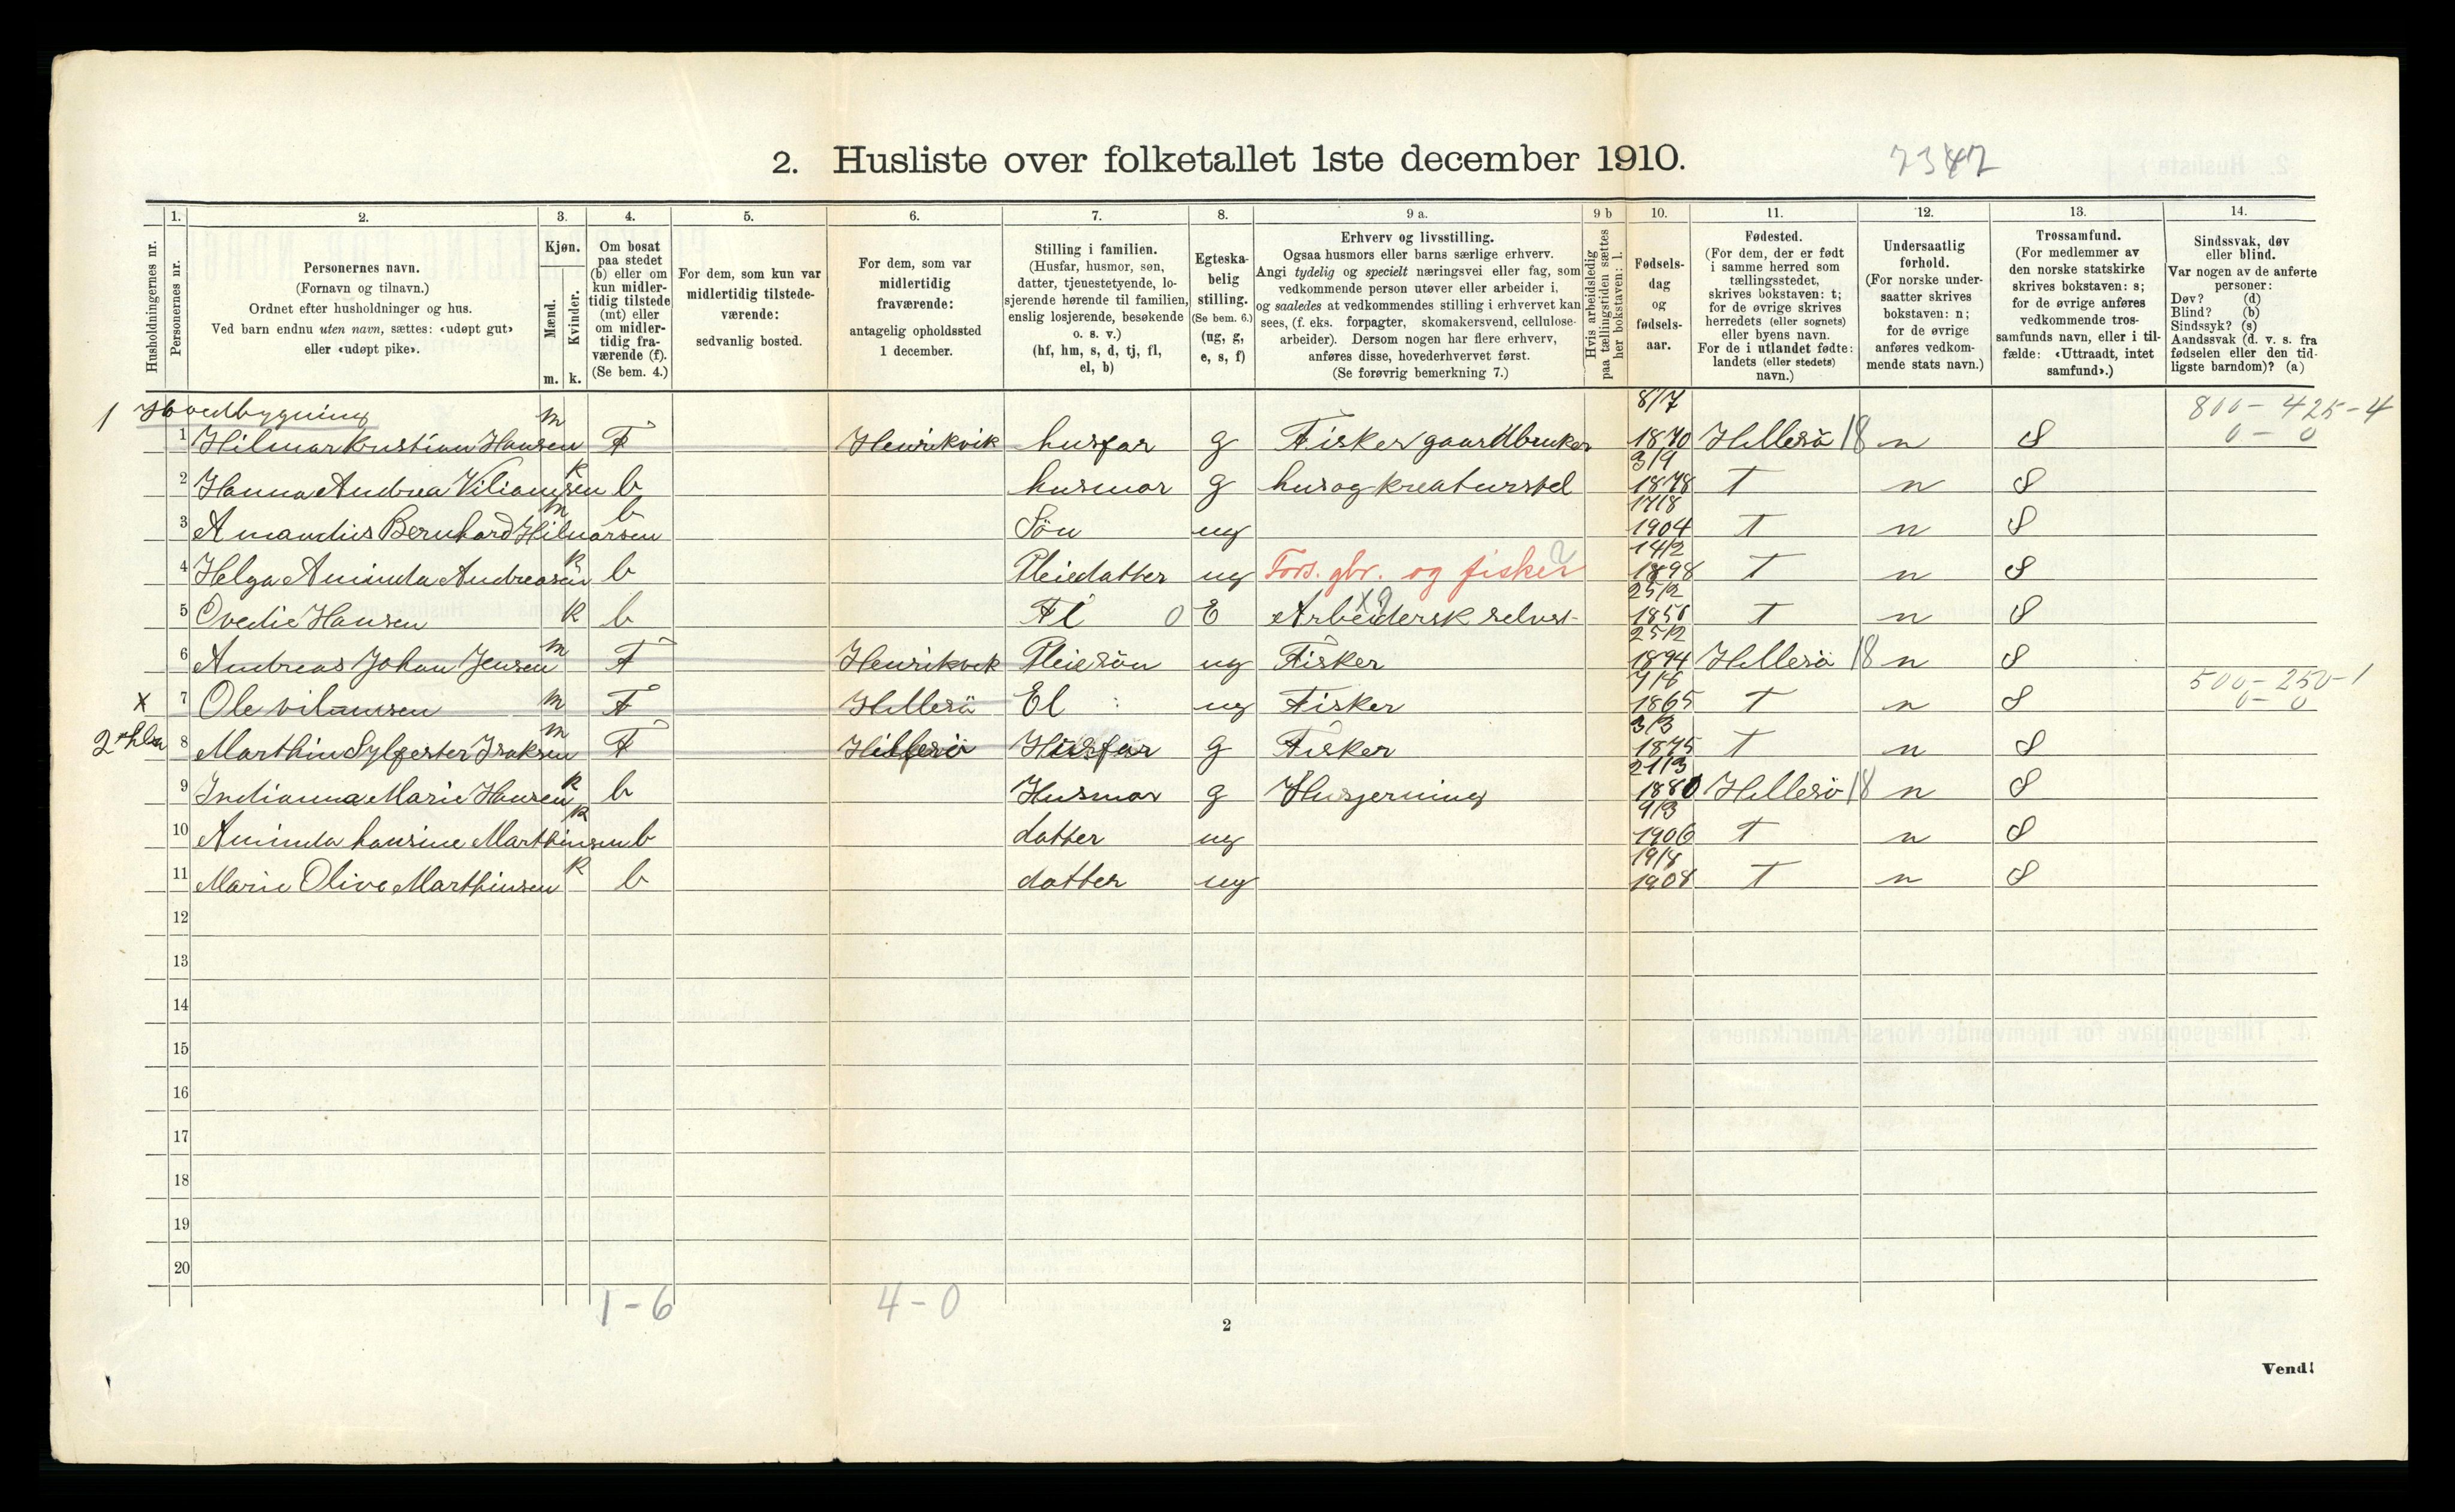 2. Husliste over folketallet 1ste december 1910.
7342
Husholdningernes nr.
1. 2. 3. 4. 5. 6. 7. 8. 9 a. 9 b 10. 11. 12. 13. 14.
Personernes nr.
Personernes navn.
(Fornavn og tilnavn.)
Ordnet efter husholdninger og hus.
Ved barn endnu uten navn, sættes: «udøpt gut»
eller «udøpt pike».
Kjøn.
Mænd.
Kvinder.
m. k.
Om bosat
paa stedet
(b) eller om
kun midler-
tidig tilstede
(mt) eller
om midler-
tidig fra-
værende (f).
(Se bem. 4.)
For dem, som kun var
midlertidig tilstede-
værende:
sedvanlig bosted.
For dem, som var
midlertidig
fraværende:
antagelig opholdssted
1 december.
Stilling i familien.
(Husfar, husmor, søn,
datter, tjenestetyende, lo-
sjerende hørende til familien,
enslig losjerende, besøkende
o. s. v.)
(hf, hm, s, d, tj, fl,
el, b)
Egteska-
belig
stilling.
(Se bem. 6.)
(ug, g,
e, s, f)
Erhverv og livsstilling.
Ogsaa husmors eller barns særlige erhverv.
Angi tydelig og specielt næringsvei eller fag, som
vedkommende person utøver eller arbeider i,
og saaledes at vedkommendes stilling i erhvervet kan
sees, (f. eks. forpagter, skomakersvend, cellulose-
arbeider). Dersom nogen har flere erhverv,
anføres disse, hovederhvervet først.
(Se forøvrig bemerkning 7.)
Hvis arbeidsledig
paa tællingstiden sættes
her bokstaven: l.
Fødsels-
dag
og
fødsels-
aar.
Fødested.
(For dem, der er født
i samme herred som
tællingsstedet,
skrives bokstaven: t;
for de øvrige skrives
herredets (eller sognets)
eller byens navn.
For de i utlandet fødte:
landets (eller stedets)
navn.)
Undersaatlig
forhold.
(For norske under-
saatter skrives
bokstaven: n;
for de øvrige
anføres vedkom-
mende stats navn.)
Trossamfund.
(For medlemmer av
den norske statskirke
skrives bokstaven: s;
for de øvrige anføres
vedkommende tros-
samfunds navn, eller i til-
fælde: «Uttraadt, intet
samfund».)
Sindssvak, døv
eller blind.
Var nogen av de anførte
personer:
Døv? (d)
Blind? (b)
Sindssyk? (s)
Aandssvak (d. v. s. fra
fødselen eller den tid-
ligste barndom)? (a)
1 Hovedbygning m 8/7 800 - 425 - 4
1 Hilmar Kristian Hansen F Henrikvik husfar g Fisker gaardbruker 1870 Hillesö 18 n S 0 - 0
2 Hanna Andrea Viliamsen k b husmor g hus og kreaturstel 3/9 1878 T n S
3 Amandus Bernhard Hilmarsen m b Sön ug 17/8 1904 T n S
4 Helga Aminda Andreasen k b Pleiedatter ug Fors. gbr. og fisker 14/2 1898 T n S
5 Ovedie Hansen k b Fl 0 E Arbeidersk selvst- 25/2 1850 T n S
6 Andreas Johan Jensen m F Henrikvik Pleiesön ug Fisker 25/2 1894 Hillesö 18 n S
x 7 Ole vilamsen m F Hillesö El ug Fisker 7/8 1865 T n S 500 - 250 - 1 0 - 0
8 Marthin Sylfester Isaksen m F Hillesö Husfar g Fisker 3/3 1875 T n S
9 Indianna Marie Hansen k b Husmor g Husgjerning 21/3 1880 Hillesö 18 n S
10 Aminda hansine Marthinsen k b datter ug 9/3 1906 T n S
11 Marie Olive Marthinsen k b datter ug 19/8 1908 T n S
12
13
14
15
16
17
18
19
20
1 - 6 4 - 0
2
Vend!